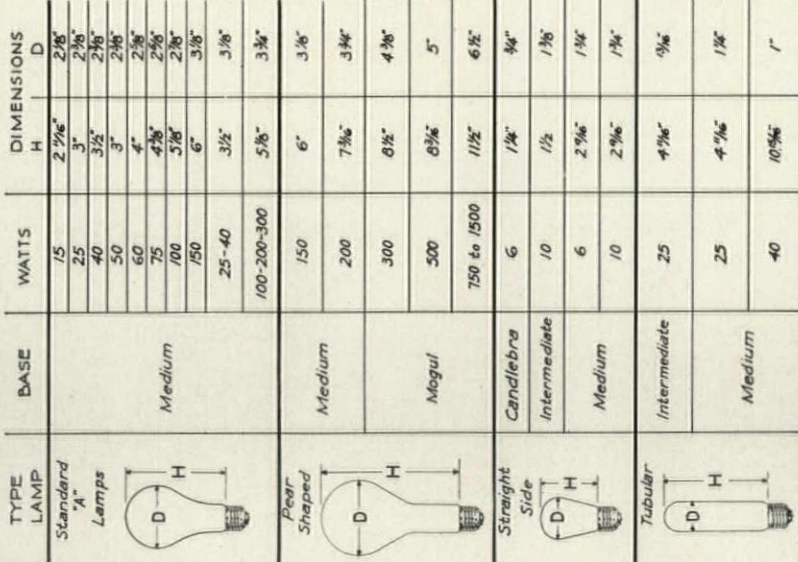 TYPE LAMP BASE WATTS DIMENSIONS
H D
Standard "A" Lamps
Medium
15 2 11/16" 2 1/8"
25 3" 2 3/8"
40 3 1/2" 2 3/8"
50 3" 2 3/8"
60 4" 2 3/8"
75 4 3/8" 2 5/8"
100 5 1/8" 2 7/8"
150 6" 3 1/8"
25-40 3 1/2" 3 1/8"
100-200-300 5 7/8" 3 3/4"
H
D
Pear Shaped
Medium
150 6" 3 1/8"
200 7 3/16" 3 3/4"
Mogul
300 8 1/2" 4 3/8"
500 5"
750 to 1500 11 1/2" 6 1/2"
H
D
Straight Side
Candlebra 6 1 1/4" 3/4"
Intermediate 10 1 1/2 1 3/8
Medium
6 2 9/16" 1 3/4"
10 2 9/16" 1 3/4"
H
D
Tubular
Intermediate 25 4 11/16" 13/16"
Medium
25 4 11/16" 1 1/4"
40 1"
H
D